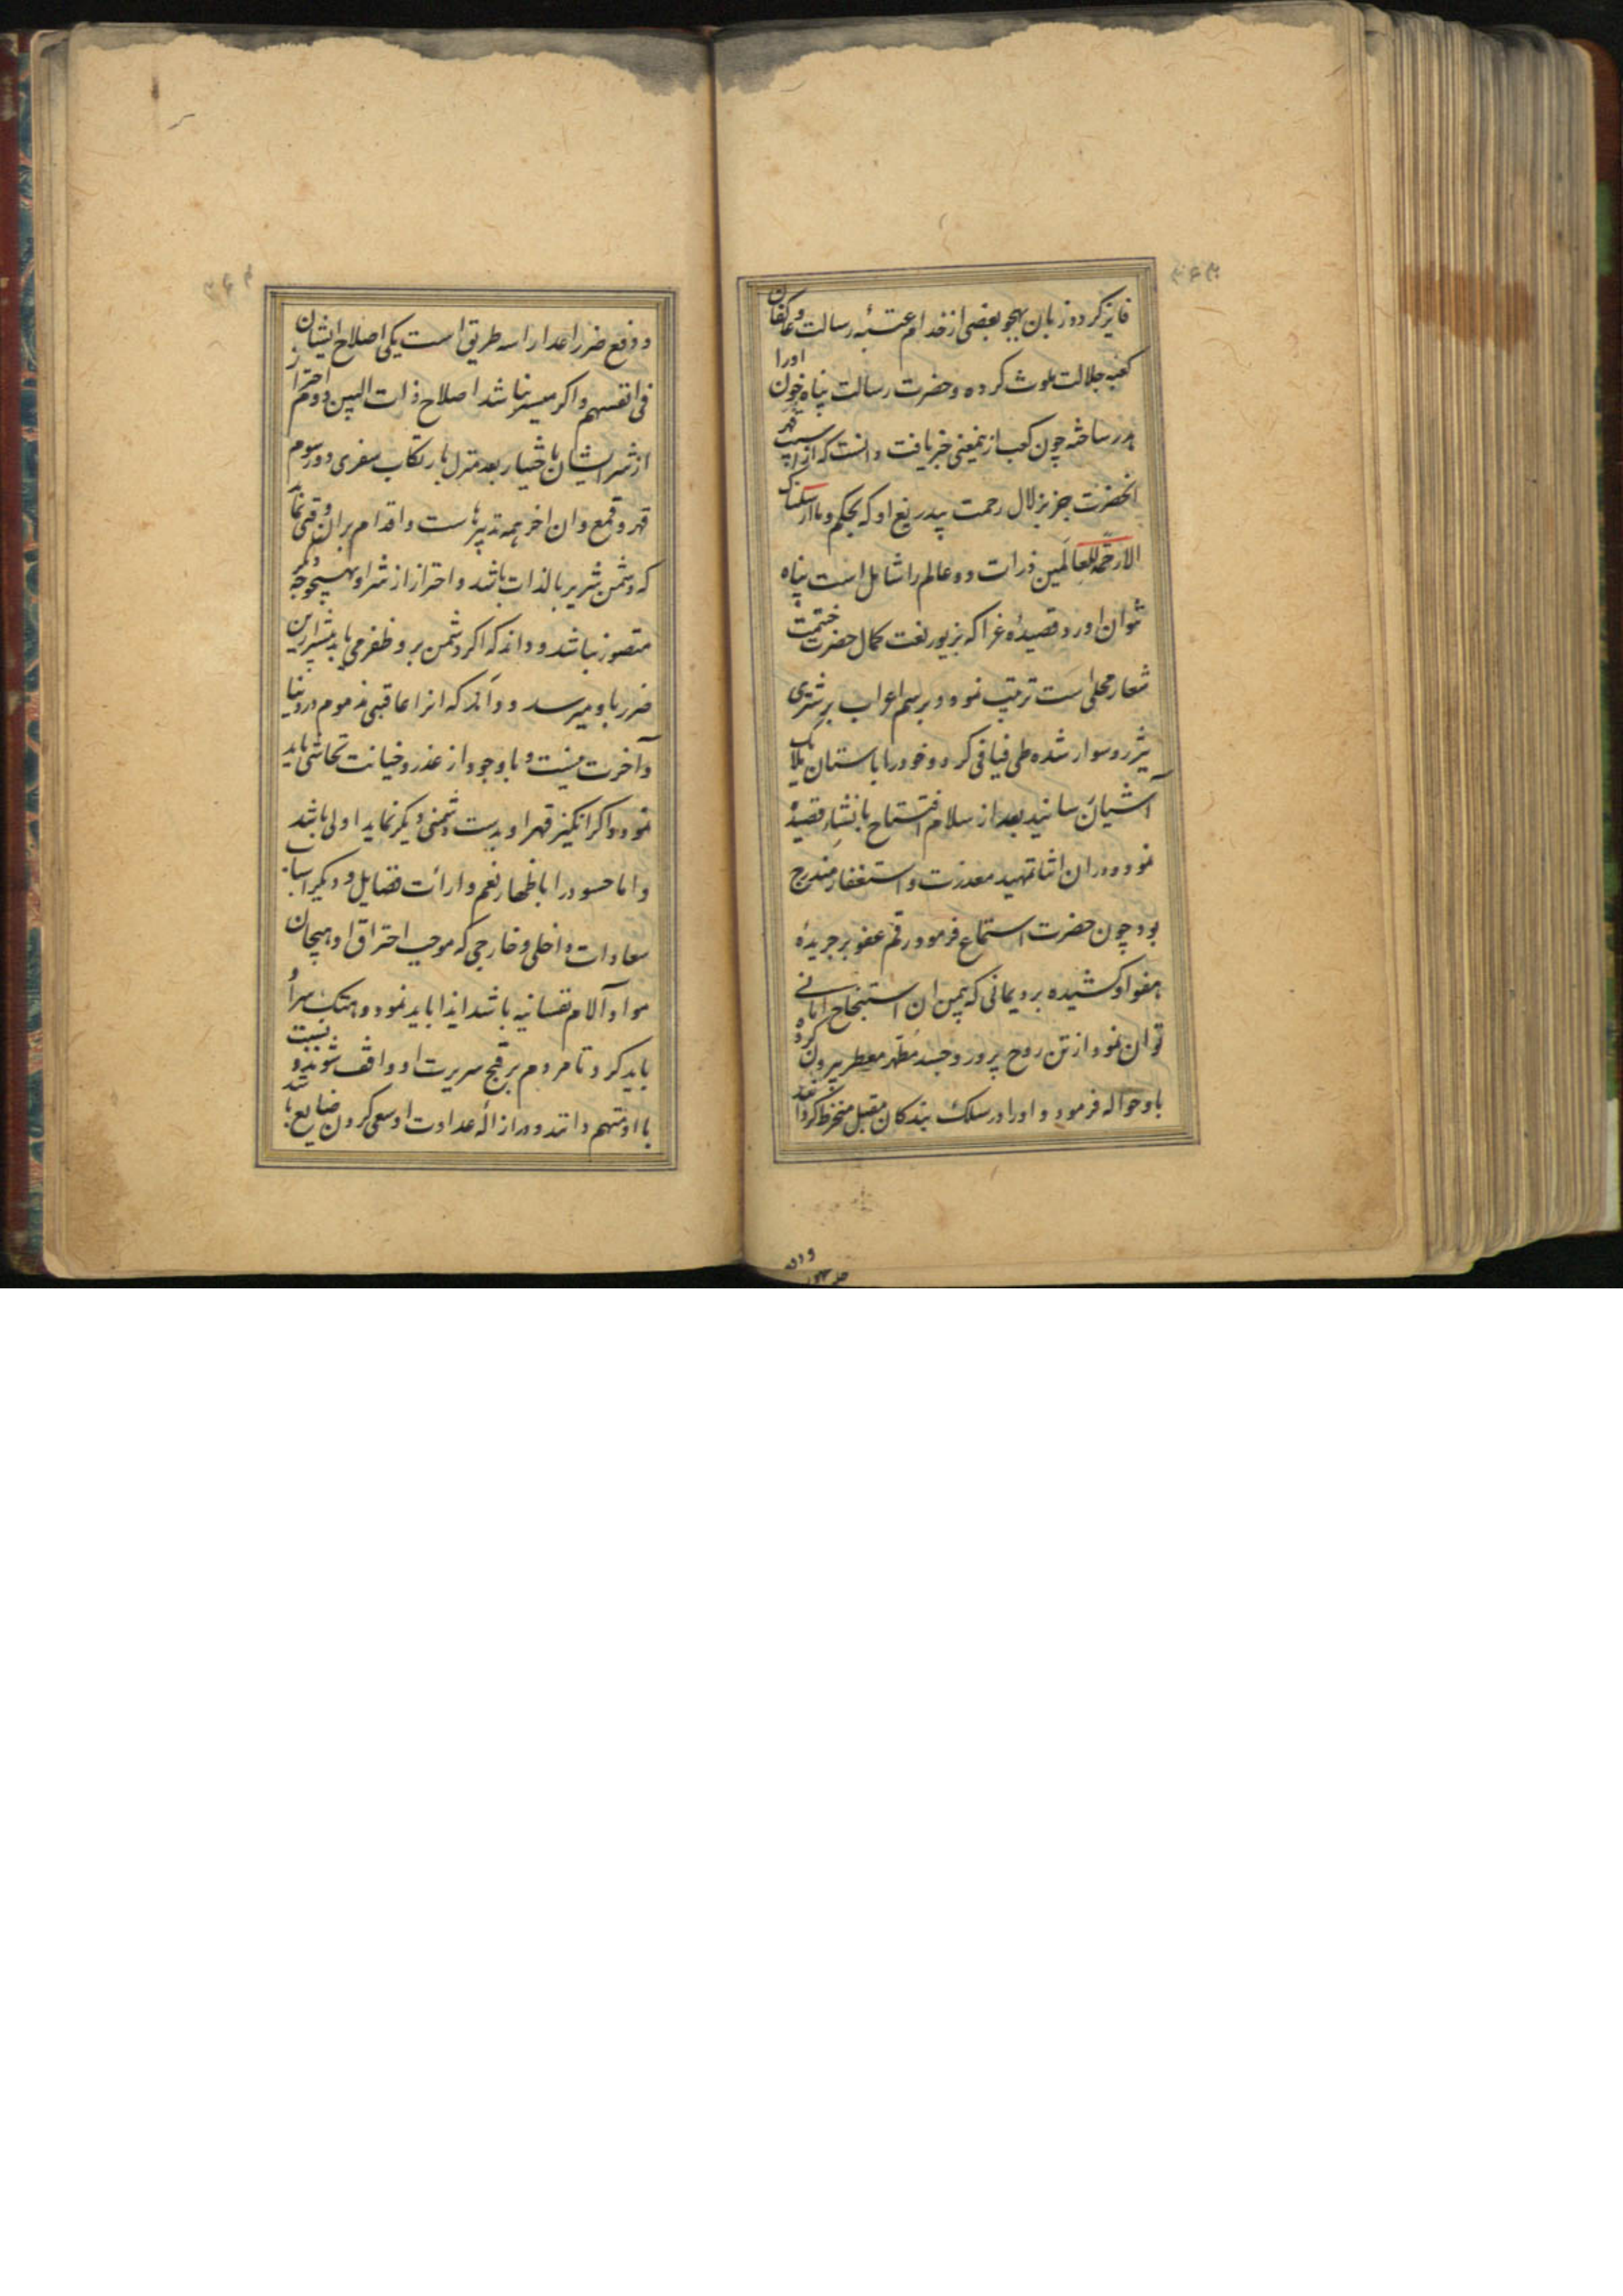 ۳۶۳
فایز کرد و زبان بهجو بعضی از خدام عتبهٔ رسالت و عاکفان
کعبه جلالت ملوث کرده و حضرت رسالت پناه خون اورا
هدر ساخته چون کعب ازینمعنی خبر یافت دانست که از آسیب قهر
انحضرت جز بزلال رحمت بیدریغ او که بحکم وما ارسلناک
الا رحمة للعالمین ذرات دو عالم را شامل است پناه
نتوان اورد قصیدهٔ غرا که بزیور نعت کمال حضرت ختمیت
شعار محلی است ترتیب نموه و برسم اعراب بر شتری
تیزرو سوار شده طی فیافی کرد و خود را باستان ملایک
آشیان رسانید بعد از سلام افتتاح بانشاء قصیده
نمود و دران اثنا تمهید معذرت و استغفار مندرج
بود چون حضرت استماع فرمود رقم عفو بر جریدهٔ
هفوا او کشیده برد یمانی که بیمن ان استنجاح امانی
توان نمود از تن روح پرور و جسد مطهر معطر بیرون کرده
باو حواله فرمود و اورا در سلک بندکان مقبل منخرط کردانید
۳۶۴
و دفع ضرر اعدا را سه طریق است یکی اصلاح ایشان
فی انفسهم و اکر میسر نباشد اصلاح ذات البین دوم احتراز
از شر ایشان باختیار بعد منزل یا بارتکاب سفری دور سوم
قهر و قمع و ان اخر همه تدبیرهاست و اقدام بران وقتی نماید
که دشمن شریر بالذات باشد و احتراز از شر او بهیچوجه دیکر
متصور نباشد و داند که اکر دشمن برو ظفر می یابد بیشتر ازین
ضرر باو میرسد و داند که انرا عاقبتی مذموم در دنیا
و آخرت نیست و با وجود از غدر و خیانت تحاشی باید
نمود و اکر انکیز قهر او بدست دشمنی دیکر نماید اولی باشد
و اما حسود را باظهار نعم و ارائت فضایل و دیکر اسباب
سعادات داخلی و خارجی که موجب احتراق او و هیجان
مواد آلام نفسانیه باشد ایذا باید نمود و هتک سر او
باید کرد تا مردم بر قبح سریرت او واقف شوند و نسبت
با او متهم دانند و در ازالهٔ عداوت او سعی کردن ضایع باشد